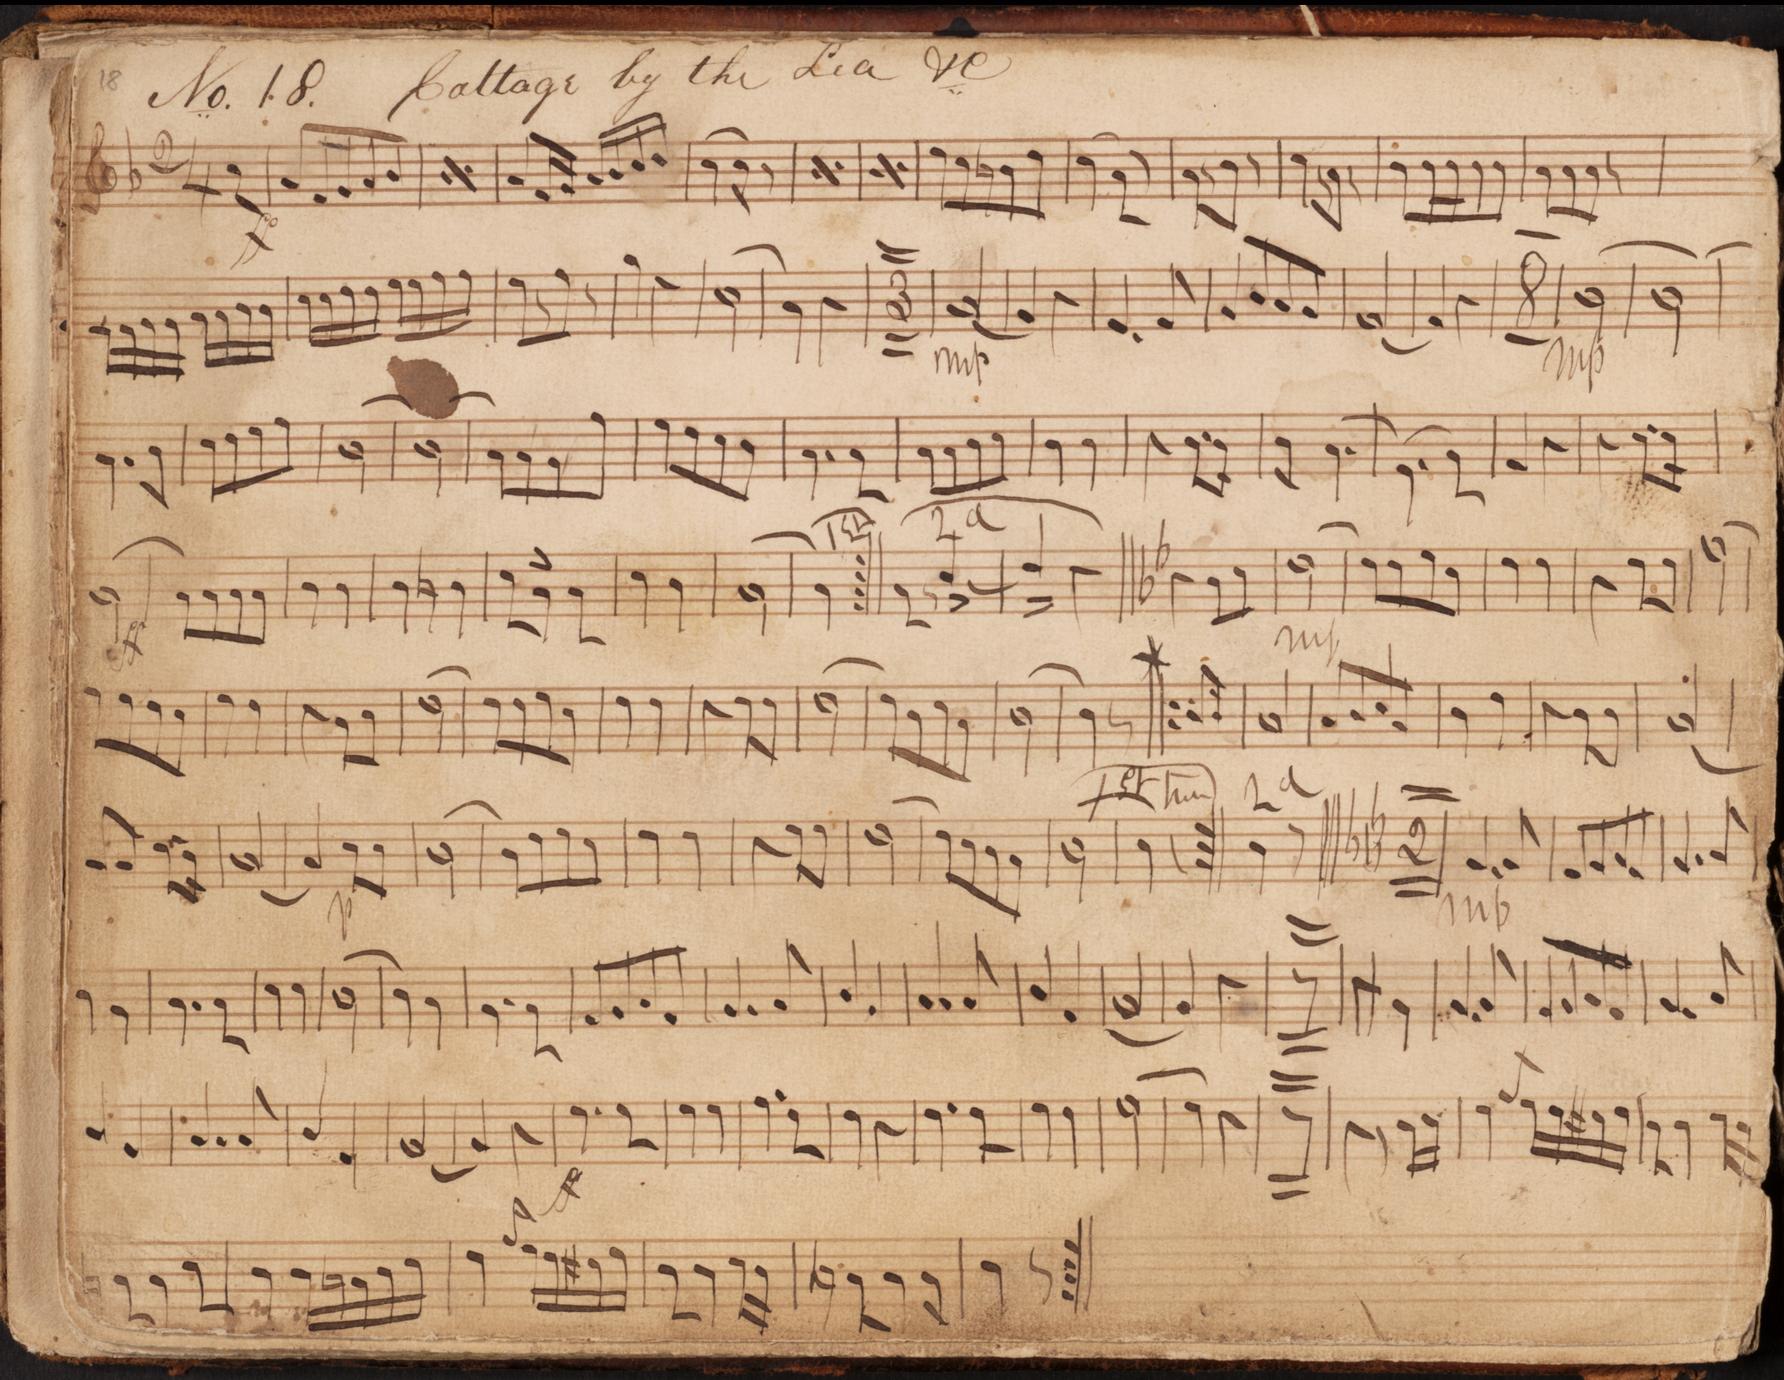 18
No. 18. Cottage by the Sea &c
2/4
f
3
mp
8
mp
1st
2d
f
mp
1st time
2d
p
2
mp
f